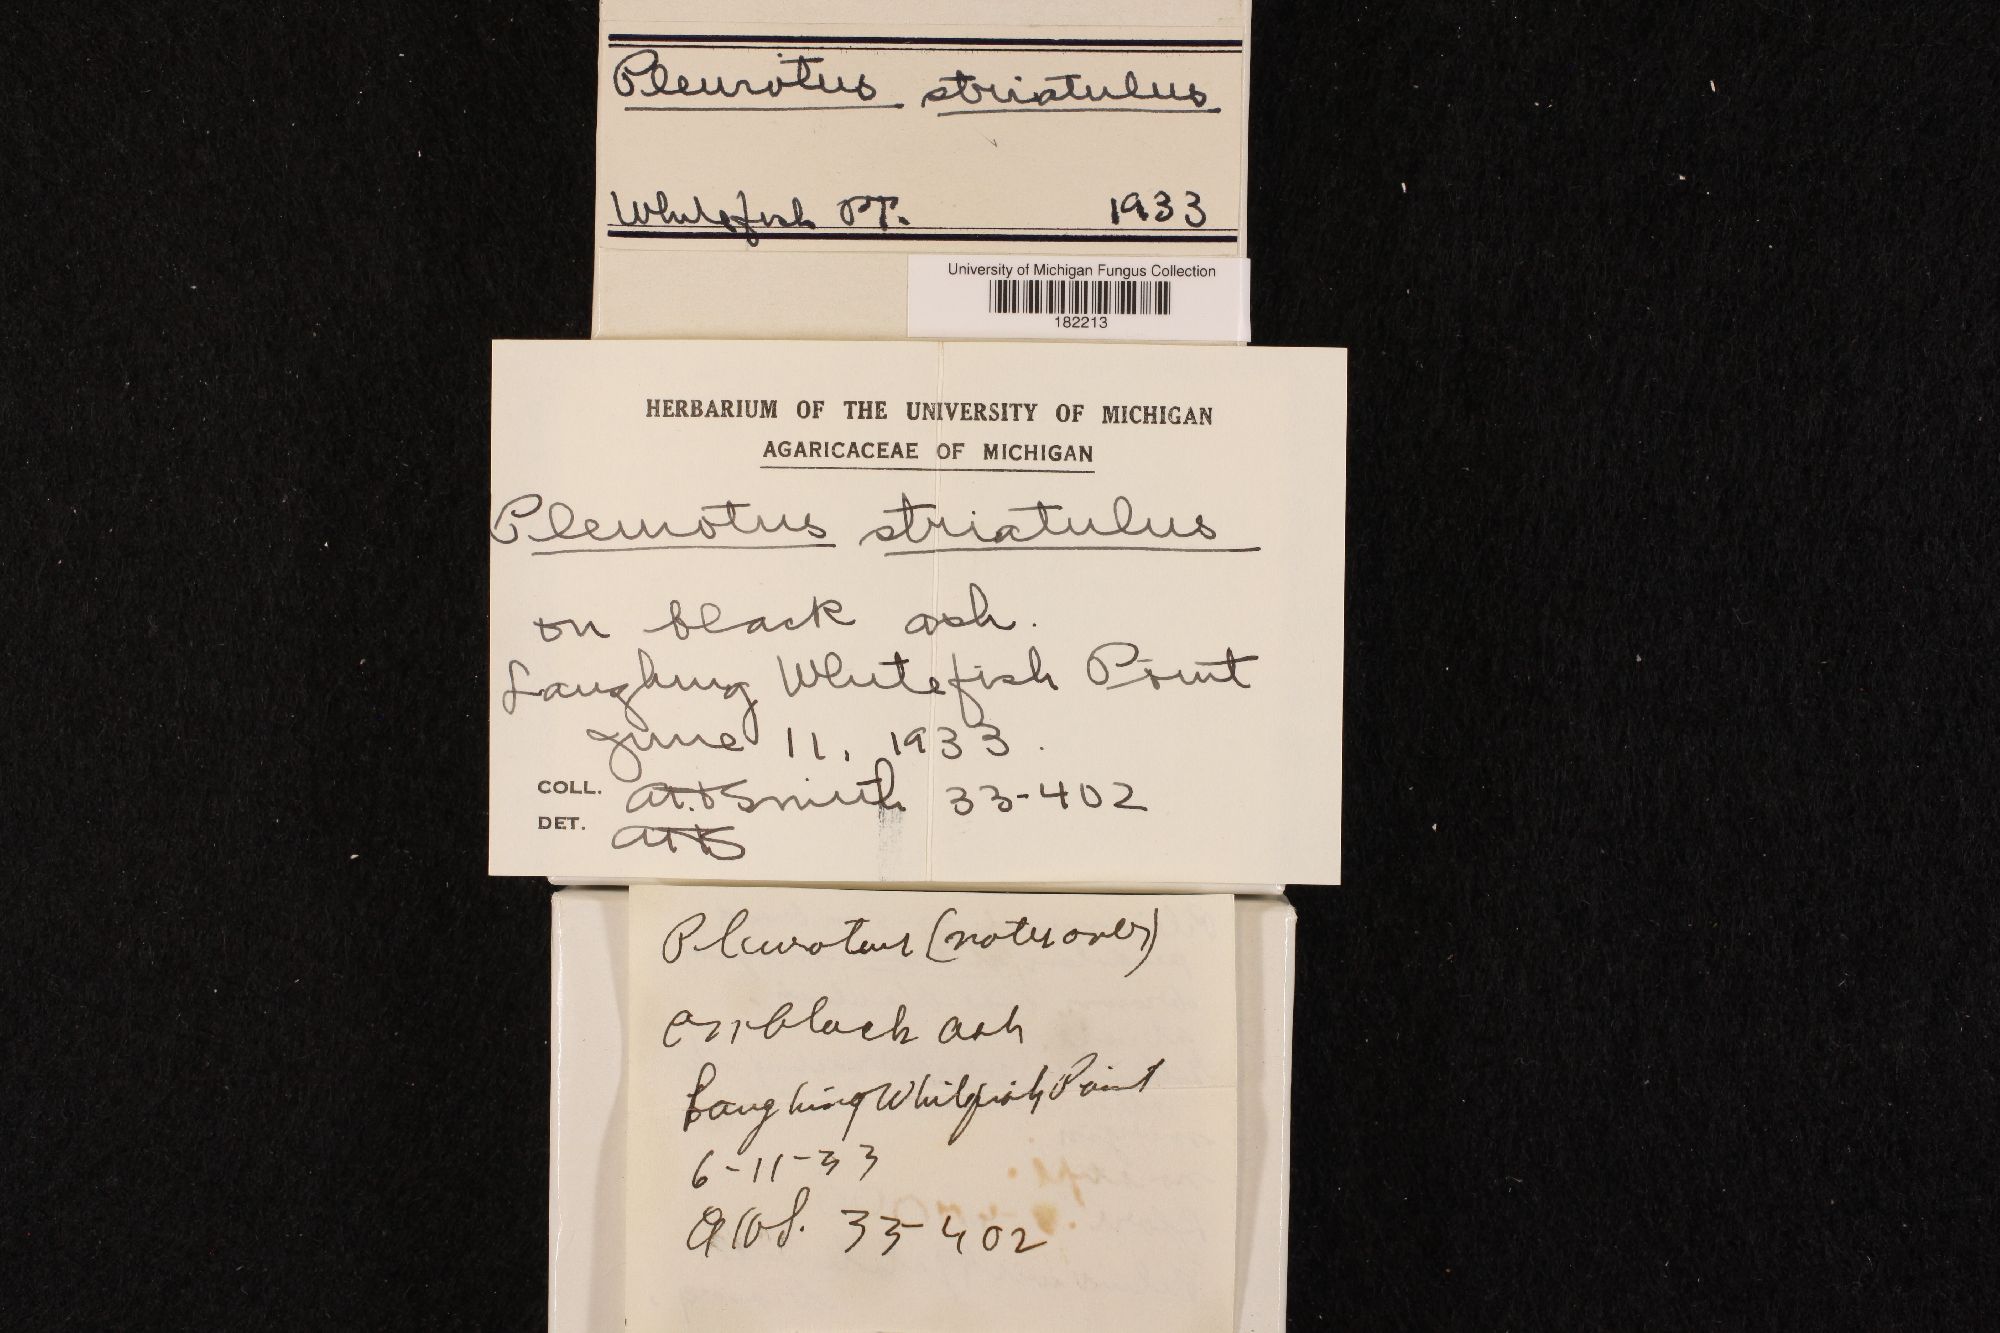 Pleurotus striatulus
Whitefish PT. 1933
University of Michigan Fungus Collection
182213
HERBARIUM OF THE UNIVERSITY OF MICHIGAN
AGARICACEAE OF MICHIGAN
Pleurotus striatulus
on black ash.
Laughing Whitefish Point
June 11, 1933.
COLL. A.H. Smith 33-402
DET. AHS
Pleurotus (notes over)
on black ash
Laughing Whitefish Point
6-11-33
33-402